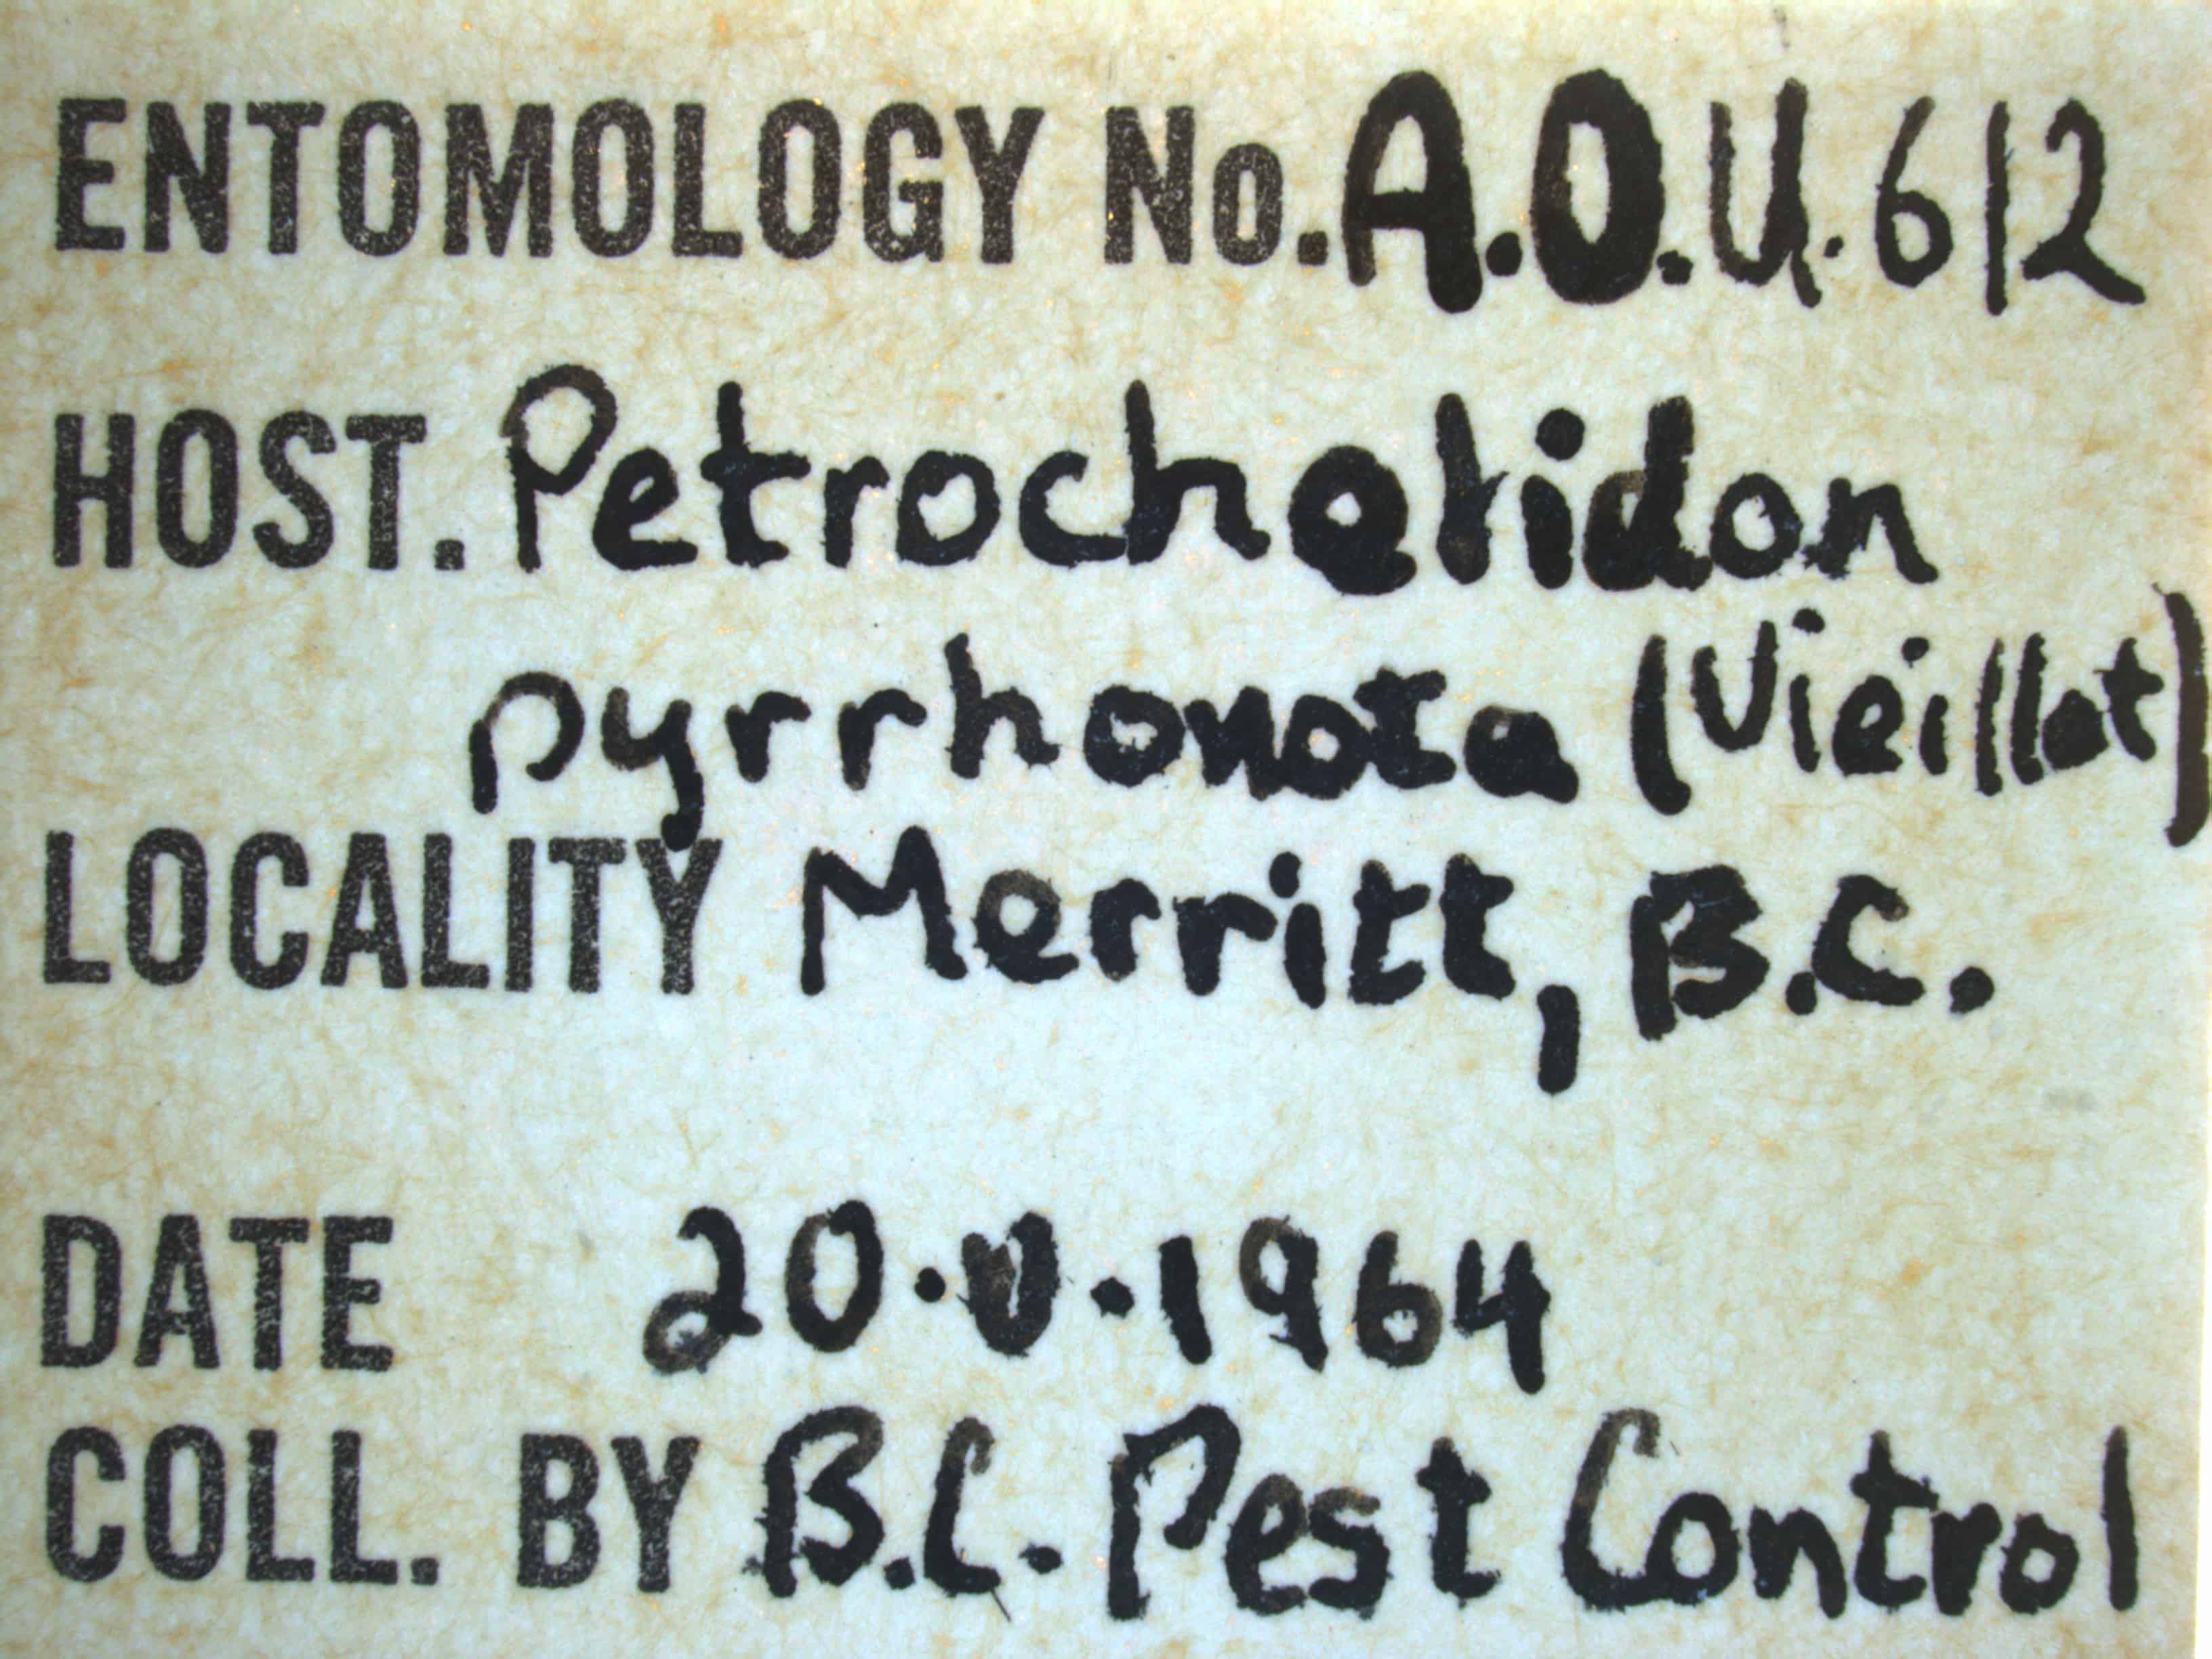 ENTOMOLOGY No. A.O.U. 612
HOST. Petrochelidon
pyrrhonota (Vieillot)
LOCALITY Merritt, B.C.
DATE 20.V.1964
COLL. BY B.C. Pest Control